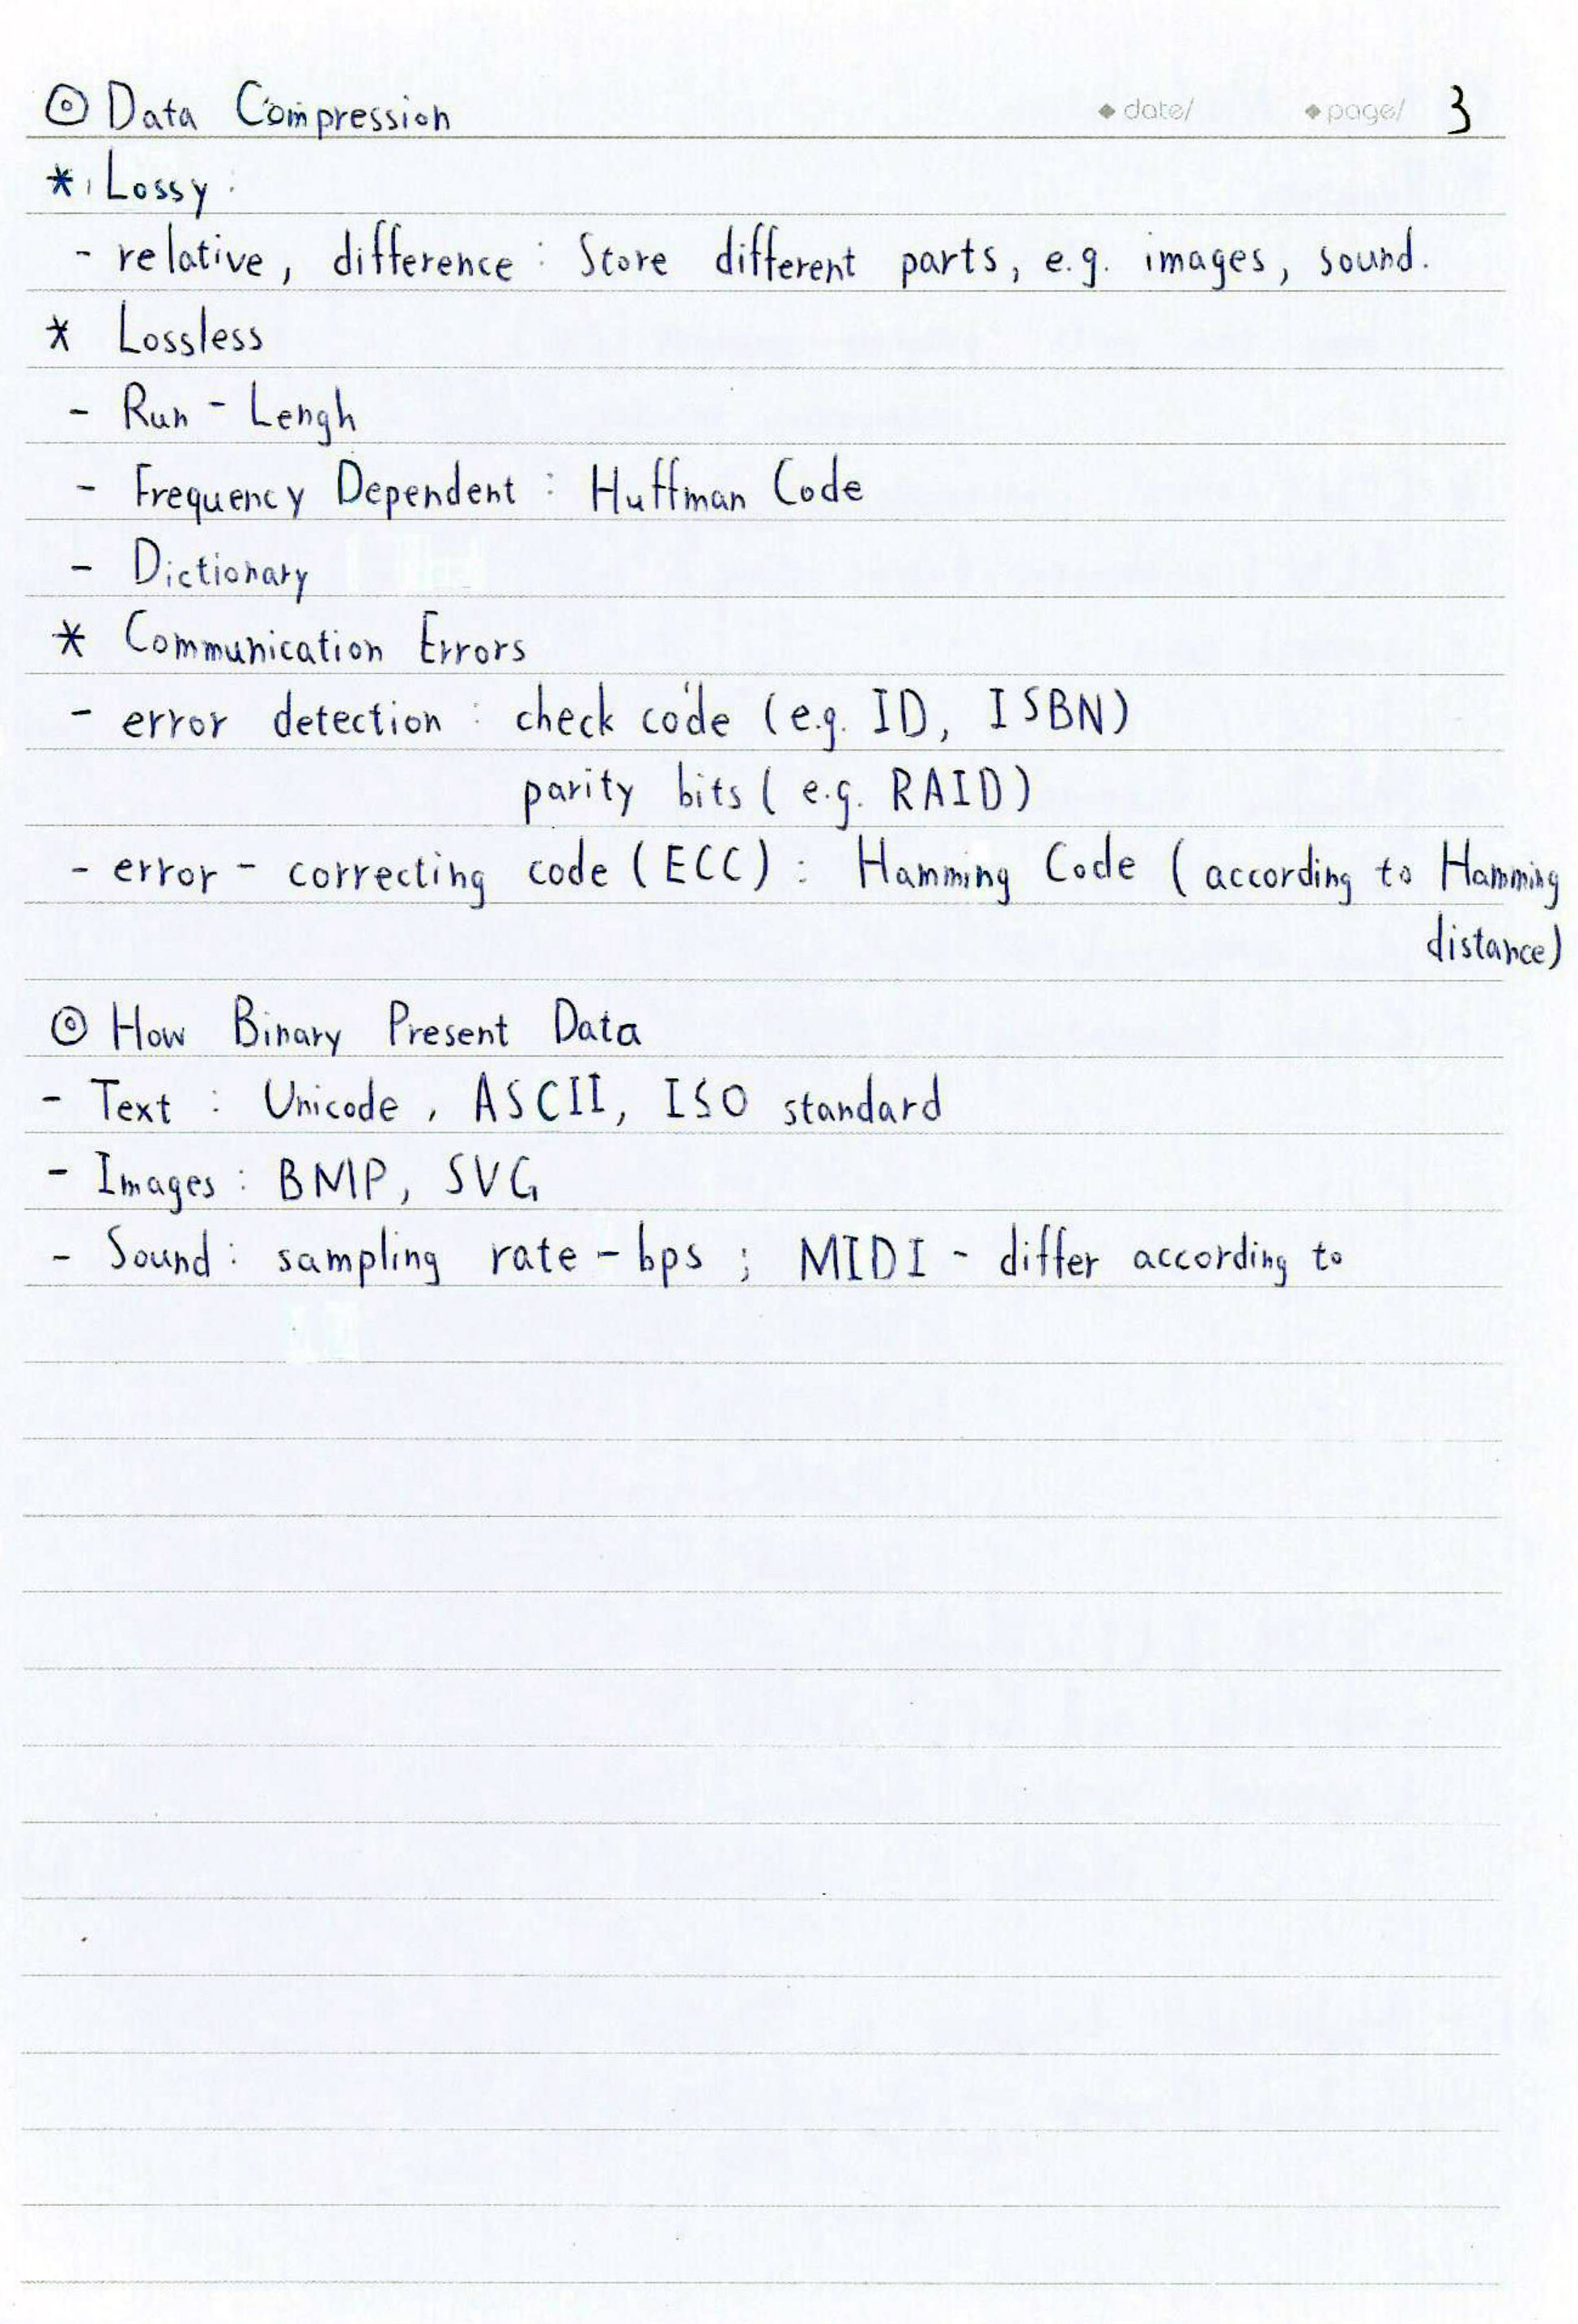 ◎ Data Compression ◆ date/ ◆ page/ 3
* Lossy :
- relative, difference : Store different parts, e.g. images, sound.
* Lossless
- Run - Lengh
- Frequency Dependent : Huffman Code
- Dictionary
* Communication Errors
- error detection : check code (e.g. ID, ISBN)
parity bits ( e.g. RAID)
- error - correcting code (ECC) : Hamming Code ( according to Hamming
distance)
◎ How Binary Present Data
- Text : Unicode , ASCII, ISO standard
- Images : BMP, SVG
- Sound : sampling rate - bps ; MIDI - differ according to